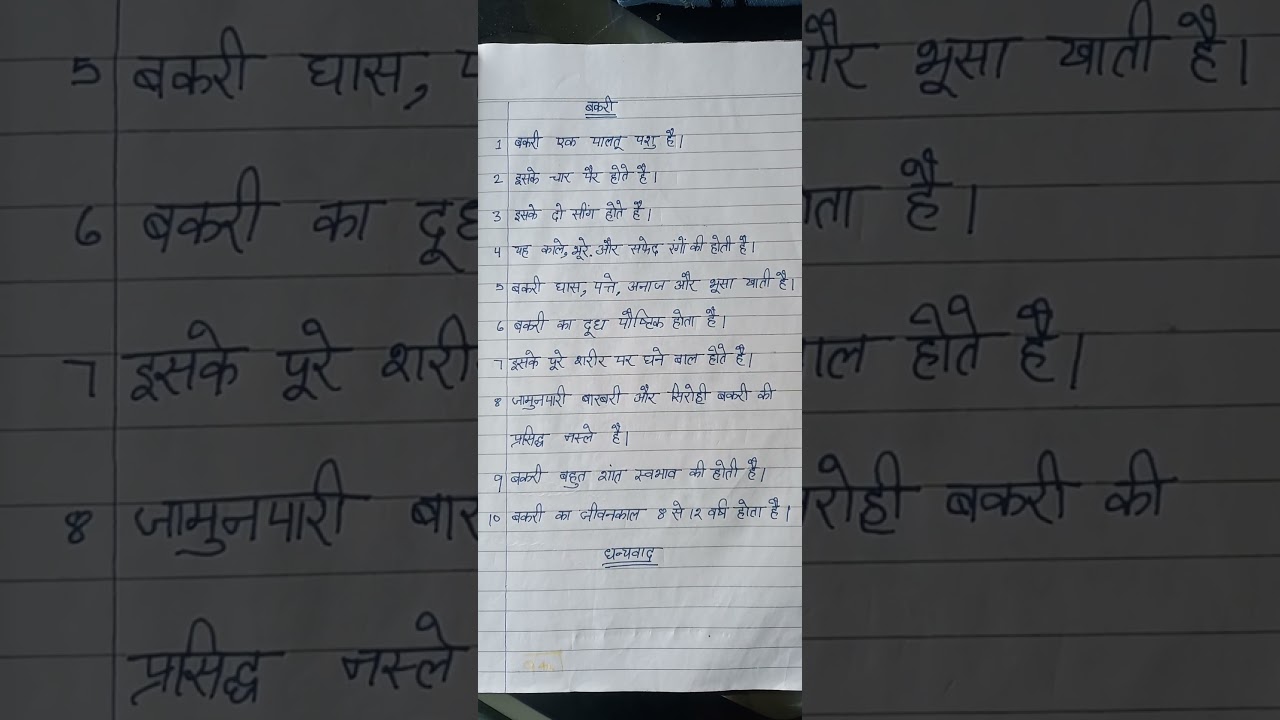 बकरी
1 बकरी एक पालतू पशु है।
2 इसके चार पैर होते है।
3 इसके दो सींग होते है।
4 यह काले, भूरे और सफेद रंगो की होती है।
5 बकरी घास, पत्ते, अनाज और भूसा खाती है।
6 बकरी का दूध पौष्टिक होता है।
7 इसके पूरे शरीर पर घने बाल होते है।
8 जामुनपारी बारबरी और सिरोही बकरी की
प्रसिद्ध नस्ले है।
9 बकरी बहुत शांत स्वभाव की होती है।
10 बकरी का जीवनकाल 8 से 12 वर्ष होता है।
धन्यवाद